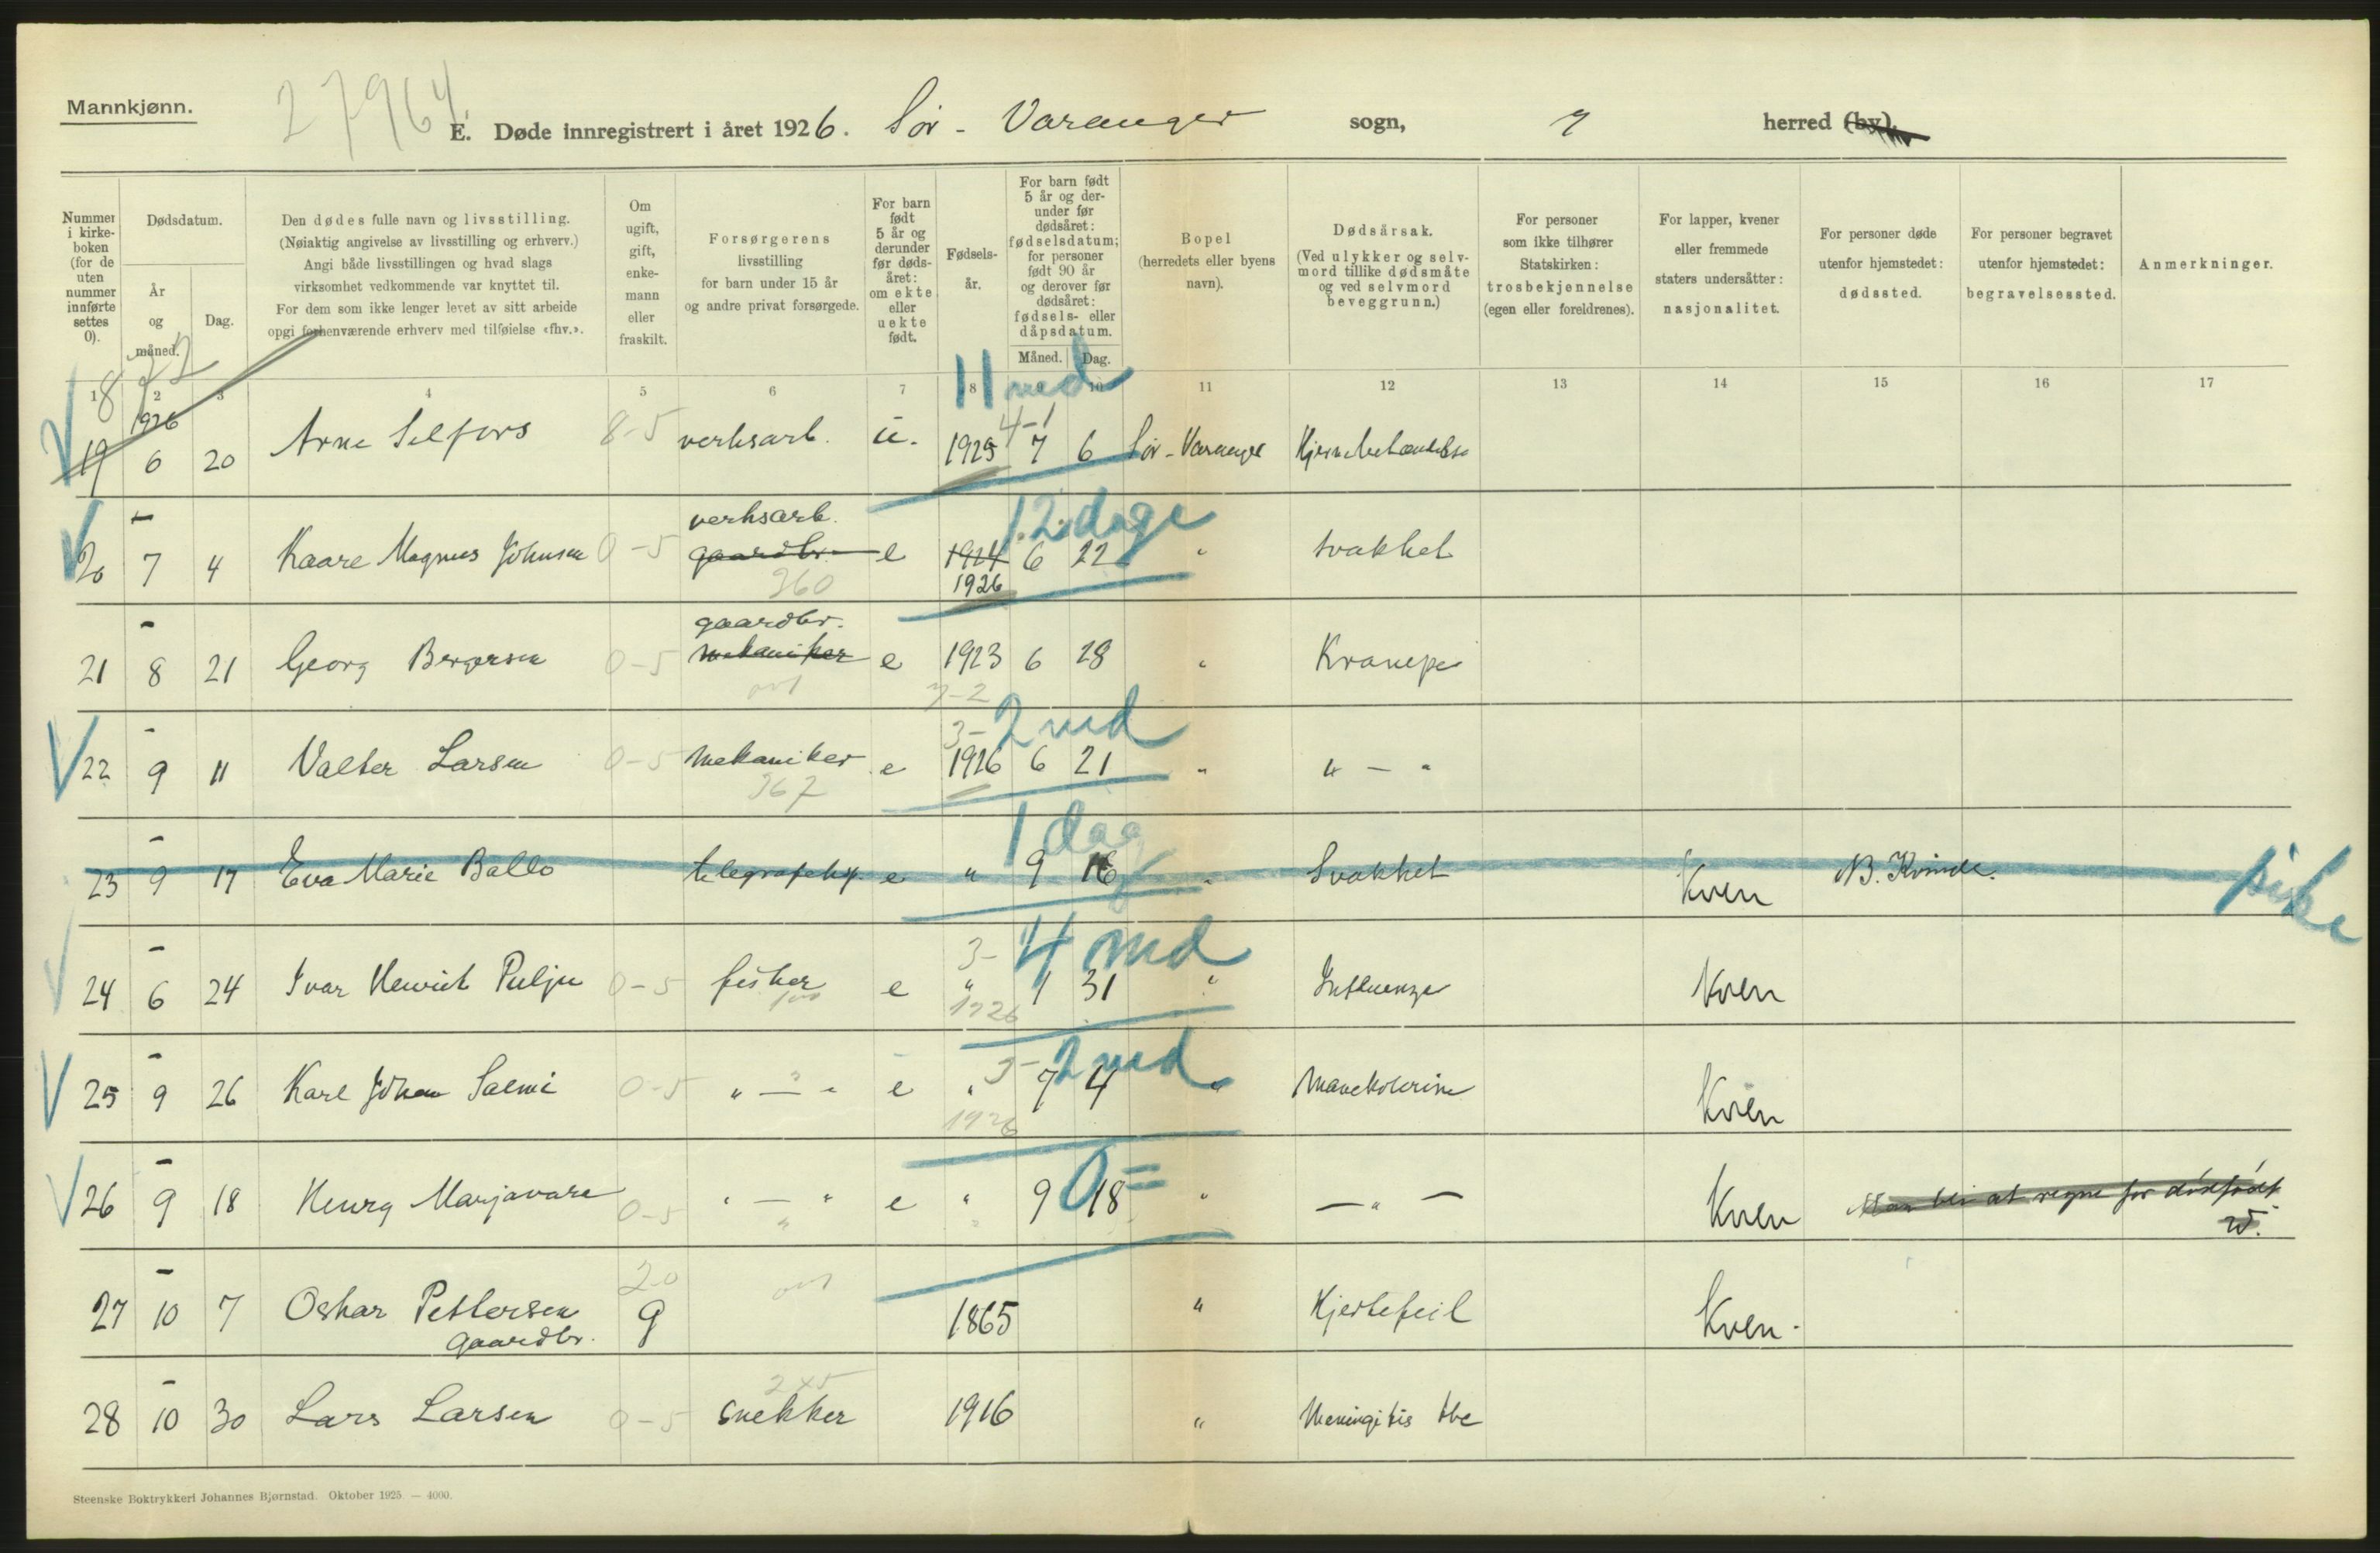 Mannkjønn.
27964.
E. Døde innregistrert i året 1926. Sör - Varanger sogn, herred (by).
Nummer i kirke-boken (for de uten nummer innførte settes 0).
Dødsdatum.
År og måned.
Dag.
Den dødes fulle navn og livsstilling.
(Nøiaktig angivelse av livsstilling og erhverv.)
Angi både livsstillingen og hvad slags
virksomhet vedkommende var knyttet til.
For dem som ikke lenger levet av sitt arbeide
opgi forhenværende erhverv med tilføielse «fhv.».
Om ugift, gift, enke-mann eller fraskilt.
Forsørgerens
livsstilling
for barn under 15 år
og andre privat forsørgede.
For barn født 5 år og derunder før døds-året: om ekte eller uekte født.
Fødsels-år.
For barn født 5 år og der-under før dødsåret: fødselsdatum; for personer født 90 år og derover før dødsåret: fødsels- eller dåpsdatum.
Måned. Dag.
Bopel
(herredets eller byens
navn).
Dødsårsak.
(Ved ulykker og selv-
mord tillike dødsmåte
og ved selvmord
beveggrunn.)
For personer
som ikke tilhører
Statskirken:
trosbekjennelse
(egen eller foreldrenes).
For lapper, kvener
eller fremmede
staters undersåtter:
nasjonalitet.
For personer døde
utenfor hjemstedet:
dødssted.
For personer begravet
utenfor hjemstedet:
begravelsessted.
Anmerkninger.
1 2 3 4 5 6 7 8 9 10 11 12 13 14 15 16 17
11 md
1926
4-1
19 6 20 Arne Selfors 8-5 verksarb. u. 1925 7 6 Sör-Varanger Hjernebetændelse
12 dage
verksarb.
20 - 7 4 Kaare Magnus Johnsen 0-5 gaardbr. e 1924 6 22 " Svakhet
360 1926
gaardbr.
21 - 8 21 Georg Bergersen 0-5 mekaniker e 1923 6 28 " Krampe
3- 2 md
22 - 9 11 Valter Larsen 0-5 mekaniker e 1926 6 21 " " - "
367
1 dag
23 - 9 17 Eva Marie Ballo telegrafarb. e " 9 16 " Svakhet Kven NB. Kvinde.
pike
3- 4 md
24 - 6 24 Ivar Henrik Pulju 0-5 fisker e " 1 31 " Influenza Kven
1926
3- 2 md
25 - 9 26 Karl Johan Salmi 0-5 " - " e " 7 4 " Mavekolerine Kven
1926
0 =
26 - 9 18 Henry Marjavara 0-5 " - " e " 9 18 " - " - Kven
27 - 10 7 Oskar Pettersen g 1865 " Hjertefeil Kven.
20
gaardbr.
28 - 10 30 Lars Larsen 0-5 snekker 1916 " Meningitis tbc
Steenske Boktrykkeri Johannes Bjørnstad. Oktober 1925 — 4000.